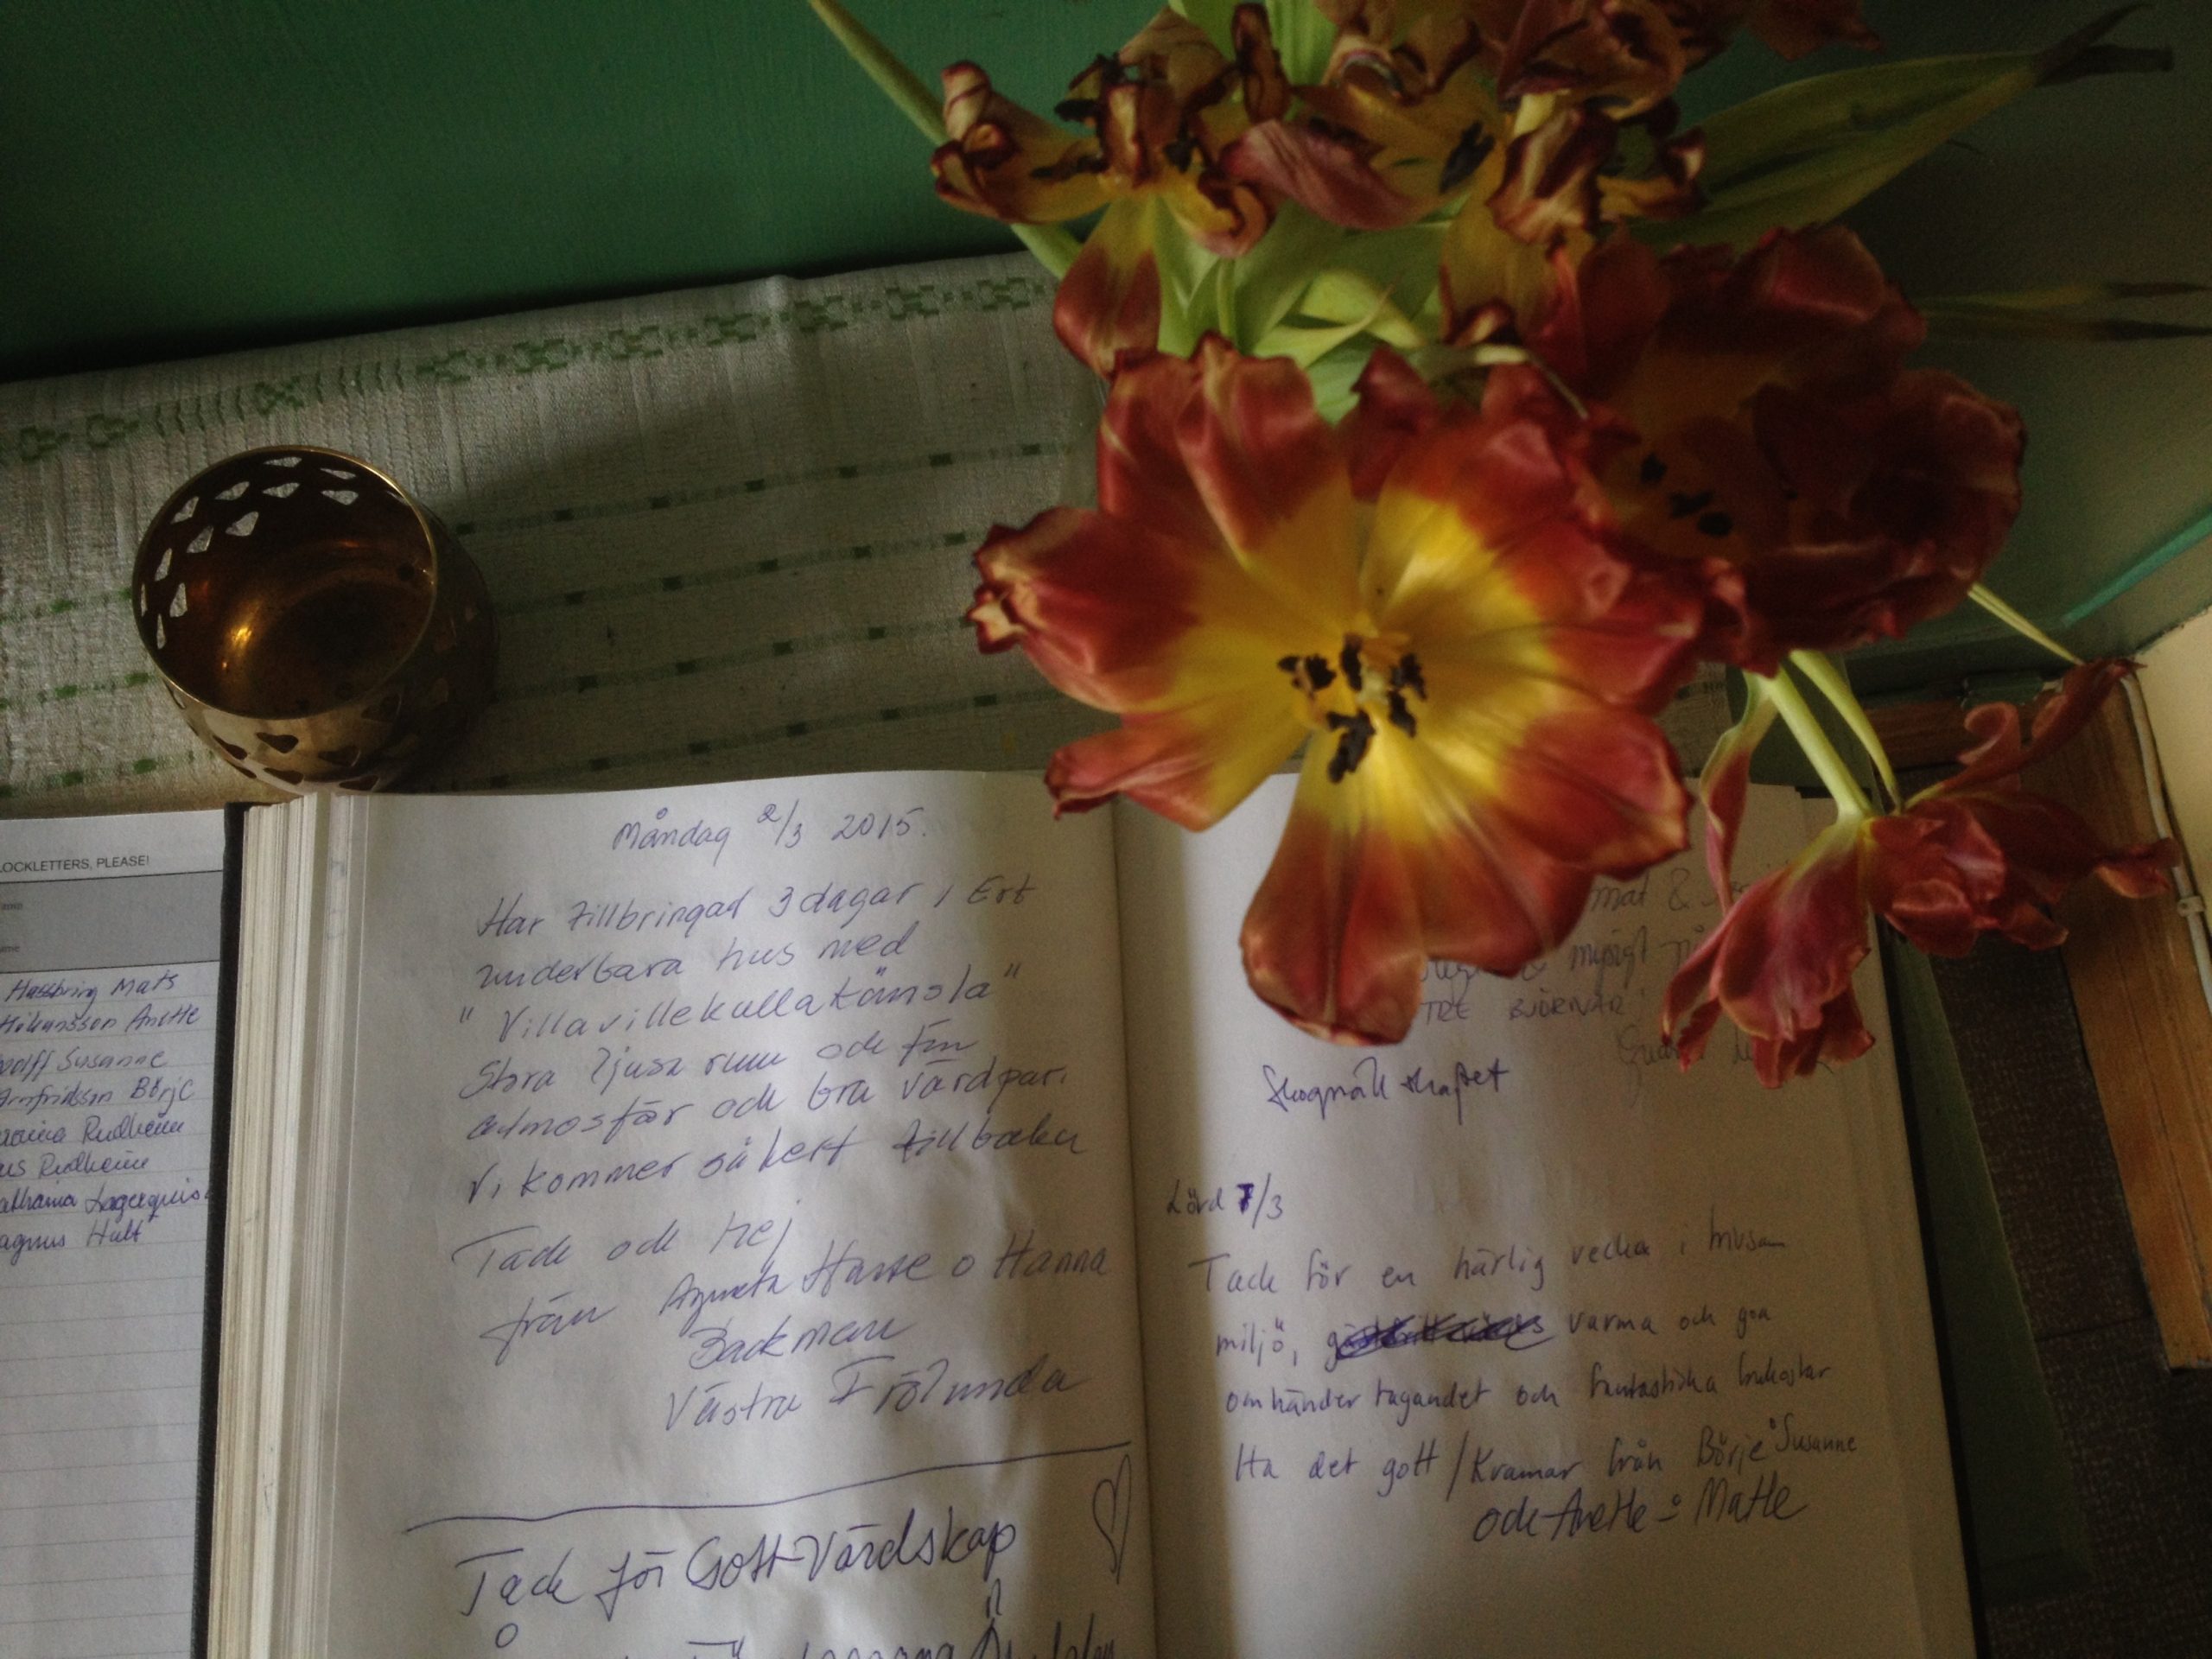 LOCKLETTERS, PLEASE!
Hassbring Mats
Håkansson Anette
Susanne
Arnfridsson Börje
Rudheim
Rudheim
Lagerquis
agnus Hult
Måndag 2/3 2015.
Har tillbringad 3 dagar i Ert
underbara hus med
"Villavillekulla känsla"
Stora ljusa rum och fin
atmosfär och bra värdpar.
Vi kommer säkert tillbaka
Tack och hej
från Agneta Hasse o Hanna
Backman
Västra Frölunda
Tack för Gott Värdskap
mat &
& mysigt
TRE BJÖRNAR
Lörd 7/3
Tack för en härlig vecka i
miljö, varma och goa
omhändertagandet och fantastiska frukostar
Ha det gott / Kramar från Börje o Susanne
och Anette o Matte